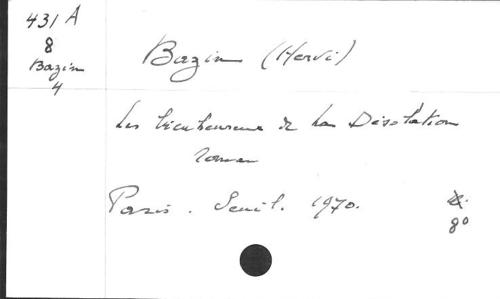 431 A
8
Bazin
4
Bazin (Hervé)
Les bienheureux de La Désolation
roman
Paris. Seuil. 1970.
8º